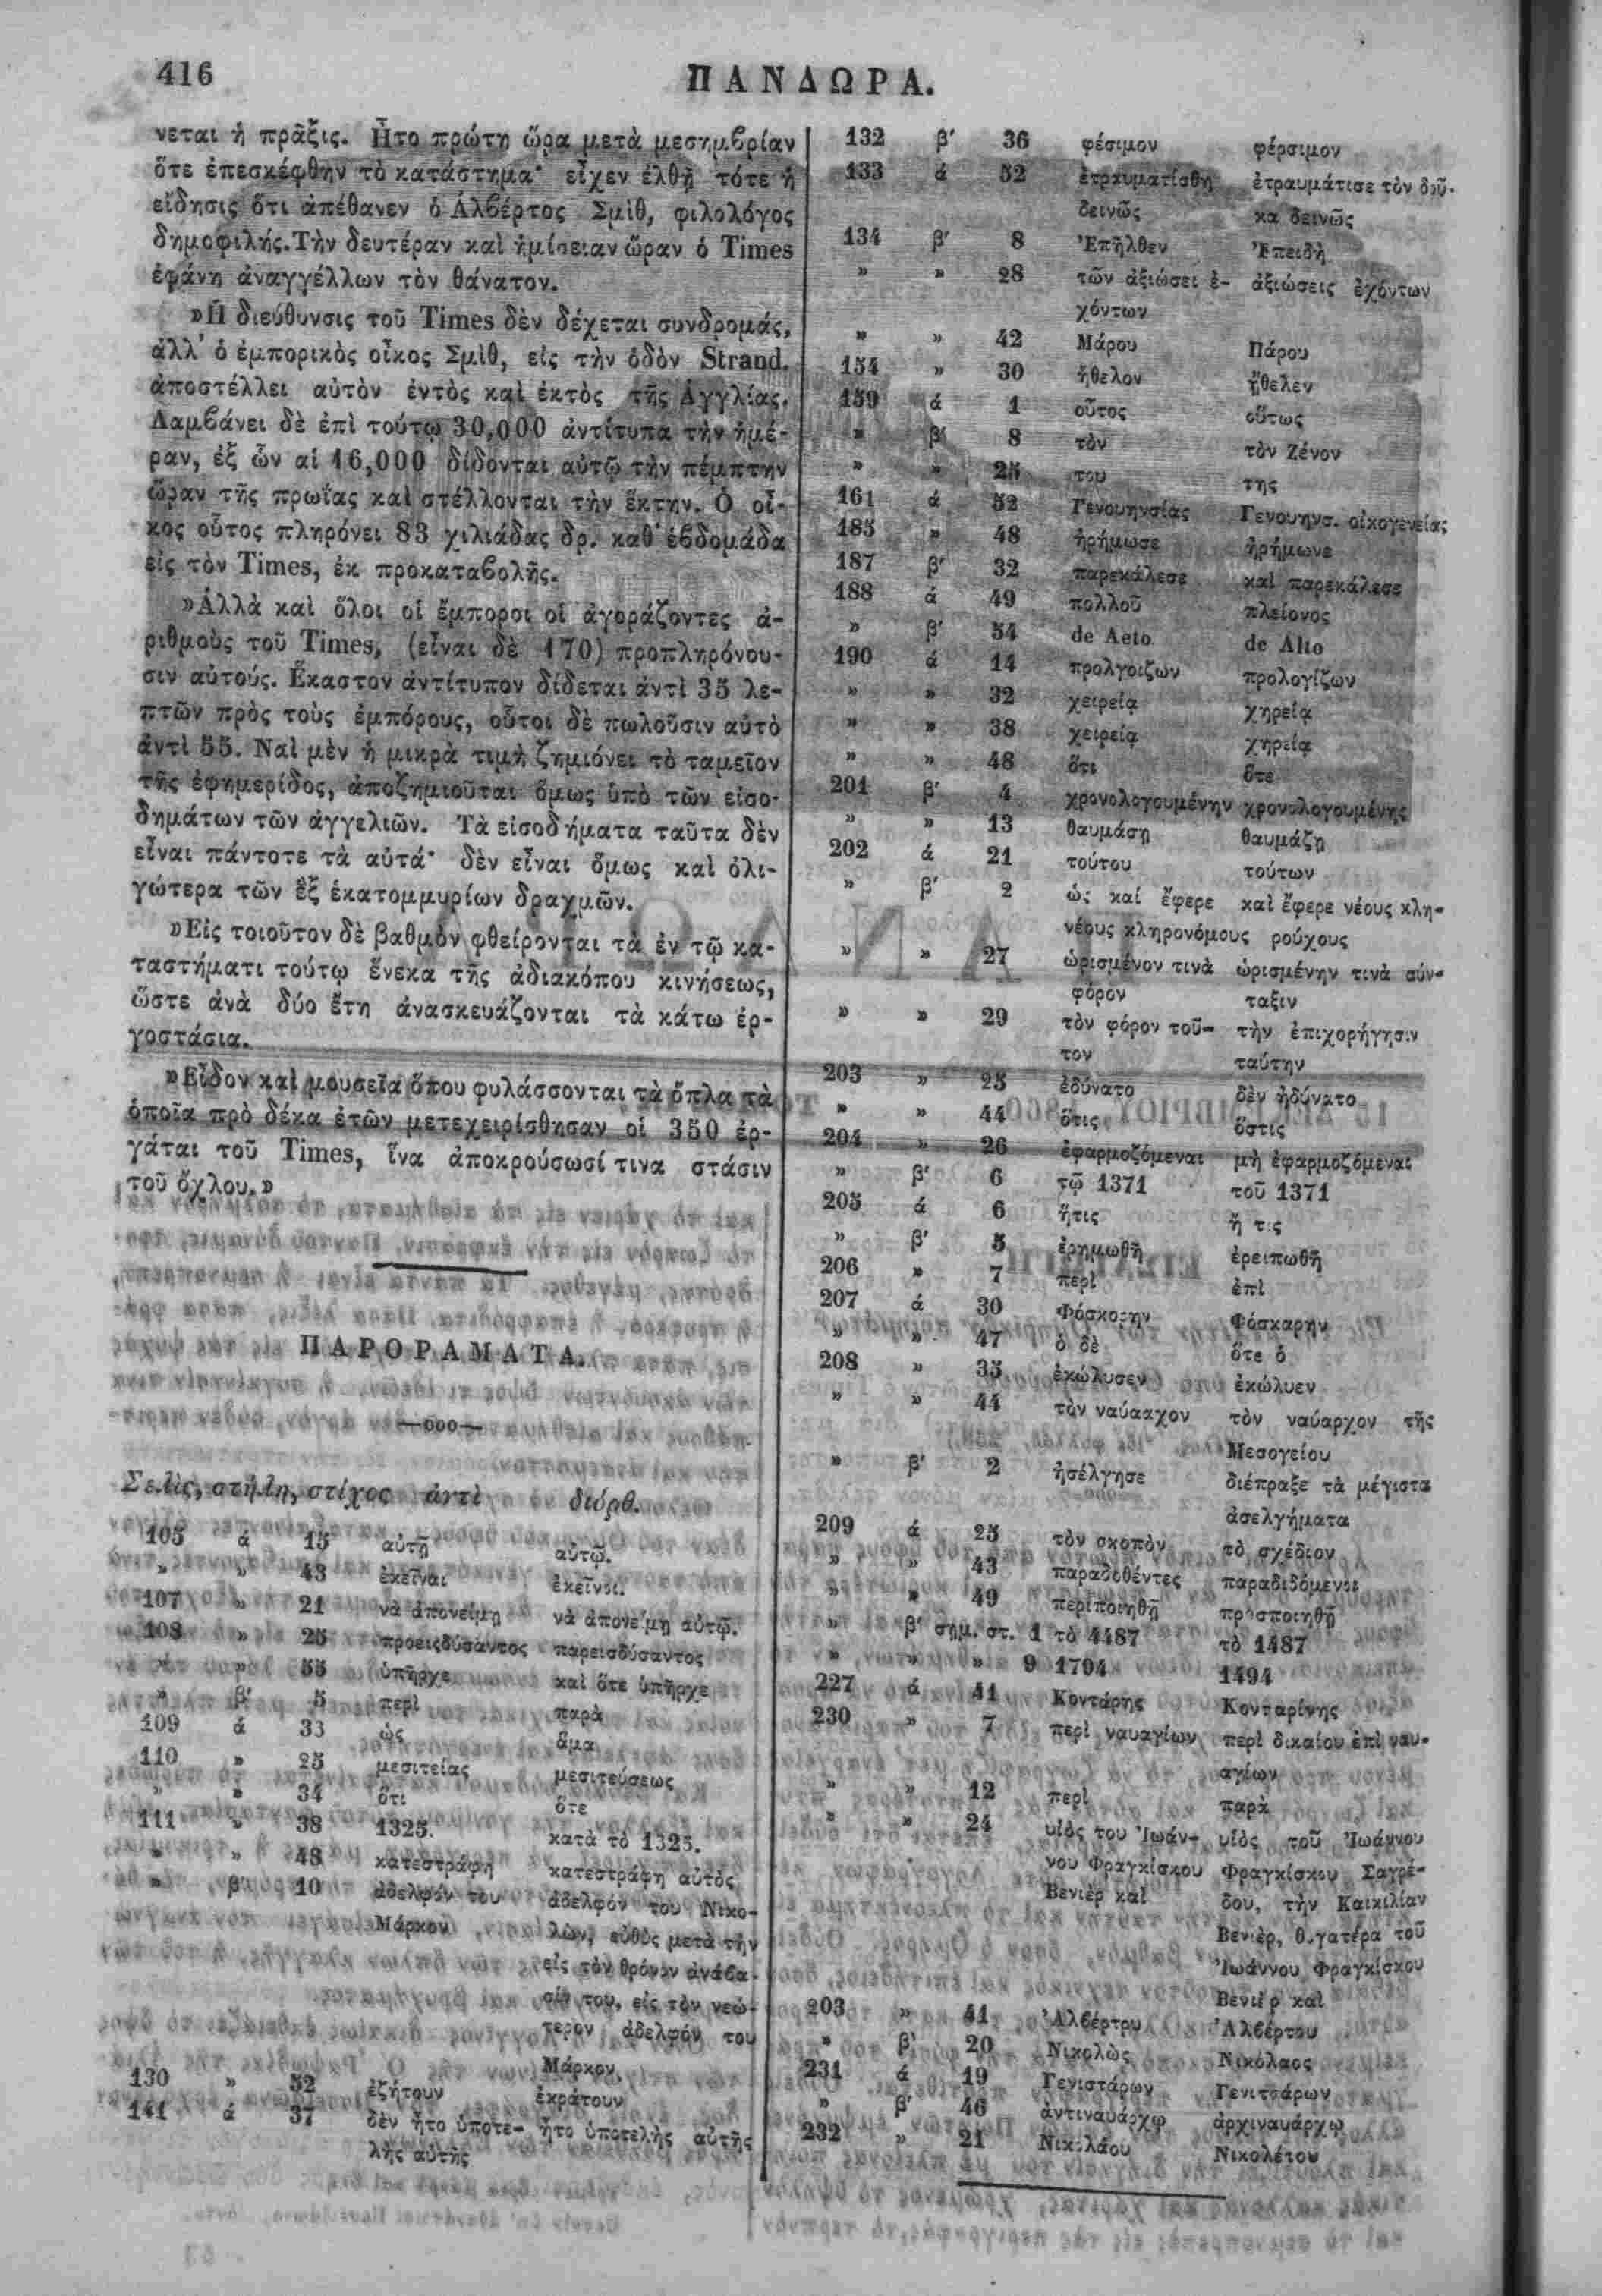 416
ΠΑΝΔΩΡΑ.
νεται ἡ πρᾶξις. Ἦτο πρώτη ὥρα μετὰ μεσημβρίαν
ὅτε ἐπεσκέφθην τὸ κατάστημα· εἶχεν ἐλθῇ τότε ἡ
εἴδησις ὅτι ἀπέθανεν ὁ Ἀλβέρτος Σμὶθ, φιλολόγος
δημοφιλής. Τὴν δευτέραν καὶ ἡμίσειαν ὥραν ὁ Times
ἐφάνη ἀναγγέλλων τὸν θάνατον.
»Ἡ διεύθυνσις τοῦ Times δὲν δέχεται συνδρομάς,
ἀλλ' ὁ ἐμπορικὸς οἶκος Σμὶθ, εἰς τὴν ὁδὸν Strand.
ἀποστέλλει αὐτὸν ἐντὸς καὶ ἐκτὸς τῆς Ἀγγλίας.
Λαμβάνει δὲ ἐπὶ τούτῳ 30,000 ἀντίτυπα τὴν ἡμέ-
ραν, ἐξ ὧν αἱ 16,000 δίδονται αὐτῷ τὴν πέμπτην
ὥραν τῆς πρωΐας καὶ στέλλονται τὴν ἕκτην. Ὁ οἶ-
κος οὗτος πληρόνει 83 χιλιάδας δρ. καθ' ἑβδομάδα
εἰς τὸν Times, ἐκ προκαταβολῆς.
»Ἀλλὰ καὶ ὅλοι οἱ ἔμποροι οἱ ἀγοράζοντες ἀ-
ριθμοὺς τοῦ Times, (εἶναι δὲ 170) προπληρόνου-
σιν αὐτούς. Ἕκαστον ἀντίτυπον δίδεται ἀντὶ 35 λε-
πτῶν πρὸς τοὺς ἐμπόρους, οὗτοι δὲ πωλοῦσιν αὐτὸ
ἀντὶ 55. Ναὶ μὲν ἡ μικρὰ τιμὴ ζημιόνει τὸ ταμεῖον
τῆς ἐφημερίδος, ἀποζημιοῦται ὅμως ὑπὸ τῶν εἰσο-
δημάτων τῶν ἀγγελιῶν. Τὰ εἰσοδήματα ταῦτα δὲν
εἶναι πάντοτε τὰ αὐτά· δὲν εἶναι ὅμως καὶ ὀλι-
γώτερα τῶν ἓξ ἑκατομμυρίων δραχμῶν.
»Εἰς τοιοῦτον δὲ βαθμὸν φθείρονται τὰ ἐν τῷ κα-
ταστήματι τούτῳ ἕνεκα τῆς ἀδιακόπου κινήσεως,
ὥστε ἀνὰ δύο ἔτη ἀνασκευάζονται τὰ κάτω ἐρ-
γοστάσια.
»Εἶδον καὶ μουσεῖα ὅπου φυλάσσονται τὰ ὅπλα τὰ
ὁποῖα πρὸ δέκα ἐτῶν μετεχειρίσθησαν οἱ 350 ἐρ-
γάται τοῦ Times, ἵνα ἀποκρούσωσί τινα στάσιν
τοῦ ὄχλου.»
ΠΑΡΟΡΑΜΑΤΑ.
—ooo—
Σελὶς, στήλη, στίχος ἀντὶ διόρθ.
105 ά 15 αὐτῇ αὐτῷ.
» » 43 ἐκεῖναι ἐκεῖνοι.
107 » 21 νὰ ἀπονείμῃ νὰ ἀπονείμῃ αὐτῷ.
108 » 25 προεισδύσαντος παρεισδύσαντος
» » 55 ὑπῆρχε καὶ ὅτε ὑπῆρχε
» β' 5 περὶ παρὰ
109 ά 33 ὡς ἅμα
110 » 25 μεσιτείας μεσιτεύσεως
» » 34 ὅτι ὅτε
111 » 38 1325. κατὰ τὸ 1325.
» » 48 κατεστράφη κατεστράφη αὐτὸς
» β' 10 ἀδελφόν του ἀδελφόν του Νικο-
Μάρκον λὼν, εὐθὺς μετὰ τὴν
εἰς τὸν θρόνον ἀνάβα-
σίν του, εἰς τὸν νεώ-
τερον ἀδελφόν του
Μάρκον
130 » 52 ἐζήτουν ἐκράτουν
141 ά 37 δὲν ἦτο ὑποτε- ἦτο ὑποτελὴς αὐτῆς
λὴς αὐτῆς
132 β' 36 φέσιμον φέρσιμον
133 ά 52 ἐτραυματίσθη ἐτραυμάτισε τὸν δοῦ-
δεινῶς κα δεινῶς
134 β' 8 Ἐπῆλθεν Ἐπειδὴ
» » 28 τῶν ἀξιώσει ἐ- ἀξιώσεις ἐχόντων
χόντων
» » 42 Μάρου Πάρου
154 » 30 ἤθελον ἤθελεν
159 ά 1 οὗτος οὕτως
» β' 8 τὸν τὸν Ζένον
» » 25 του της
161 ά 52 Γενουηνσίας Γενουηνσ. οἰκογενείας
185 » 48 ἠρήμωσε ἠρήμωνε
187 β' 32 παρεκάλεσε καὶ παρεκάλεσε
188 ά 49 πολλοῦ πλείονος
» β' 54 de Aeto de Alto
190 ά 14 προλγοιζων προλογίζων
» » 32 χειρείᾳ χηρείᾳ
» » 38 χειρείᾳ χηρείᾳ
» » 48 ὅτι ὅτε
201 β' 4 χρονολογουμένην χρονολογουμένης
» » 13 θαυμάσῃ θαυμάζῃ
202 ά 21 τούτου τούτων
» β' 2 ὡς καί ἔφερε καὶ ἔφερε νέους κλη-
νέους κληρονόμους ρούχους
» » 27 ὡρισμένον τινὰ ὡρισμένην τινὰ σύν-
φόρον ταξιν
» » 29 τὸν φόρον τοῦ- τὴν ἐπιχορήγησιν
τον ταύτην
203 » 25 ἐδύνατο δὲν ἠδύνατο
» » 44 ὅτις ὅστις
204 » 26 ἐφαρμοζόμεναι μὴ ἐφαρμοζόμεναι
» β' 6 τῷ 1371 τοῦ 1371
205 ά 6 ἥτις ἤ τις
» β' 5 ἐρημωθῇ ἐρειπωθῇ
206 » 7 περὶ ἐπὶ
207 ά 30 Φόσκορην Φόσκαρην
» » 47 ὁ δὲ ὅτε ὁ
208 » 35 ἐκώλυσεν ἐκώλυεν
» » 44 τὸν ναύααχον τὸν ναύαρχον τῆς
Μεσογείου
» β' 2 ἠσέλγησε διέπραξε τὰ μέγιστα
ἀσελγήματα
209 ά 25 τὸν σκοπὸν τὸ σχέδιον
» » 43 παραδοθέντες παραδιδόμενοι
» » 49 περιποιηθῇ προσποιηθῇ
» β' σημ. στ. 1 τὸ 4487 τὸ 1487
» » » 9 1794 1494
227 ά 41 Κοντάρης Κονταρίνης
230 » 7 περὶ ναυαγίων περὶ δικαίου ἐπὶ ναυ-
αγίων
» » 12 περὶ παρὰ
» » 24 υἱὸς του Ἰωάν- υἱὸς τοῦ Ἰωάννου
νου Φραγκίσκου Φραγκίσκου Σαγρέ-
Βενιὲρ καὶ δου, τὴν Καικιλίαν
Βενιὲρ, θυγατέρα τοῦ
Ἰωάννου Φραγκίσκου
Βενιὲρ καὶ
203 » 41 Ἀλβέρτρυ Ἀλβέρτου
» β' 20 Νικολὼς Νικόλαος
231 ά 19 Γενιστάρων Γενιτσάρων
» β' 46 ἀντιναυάρχῳ ἀρχιναυάρχῳ
232 » 21 Νικολάου Νικολέτου